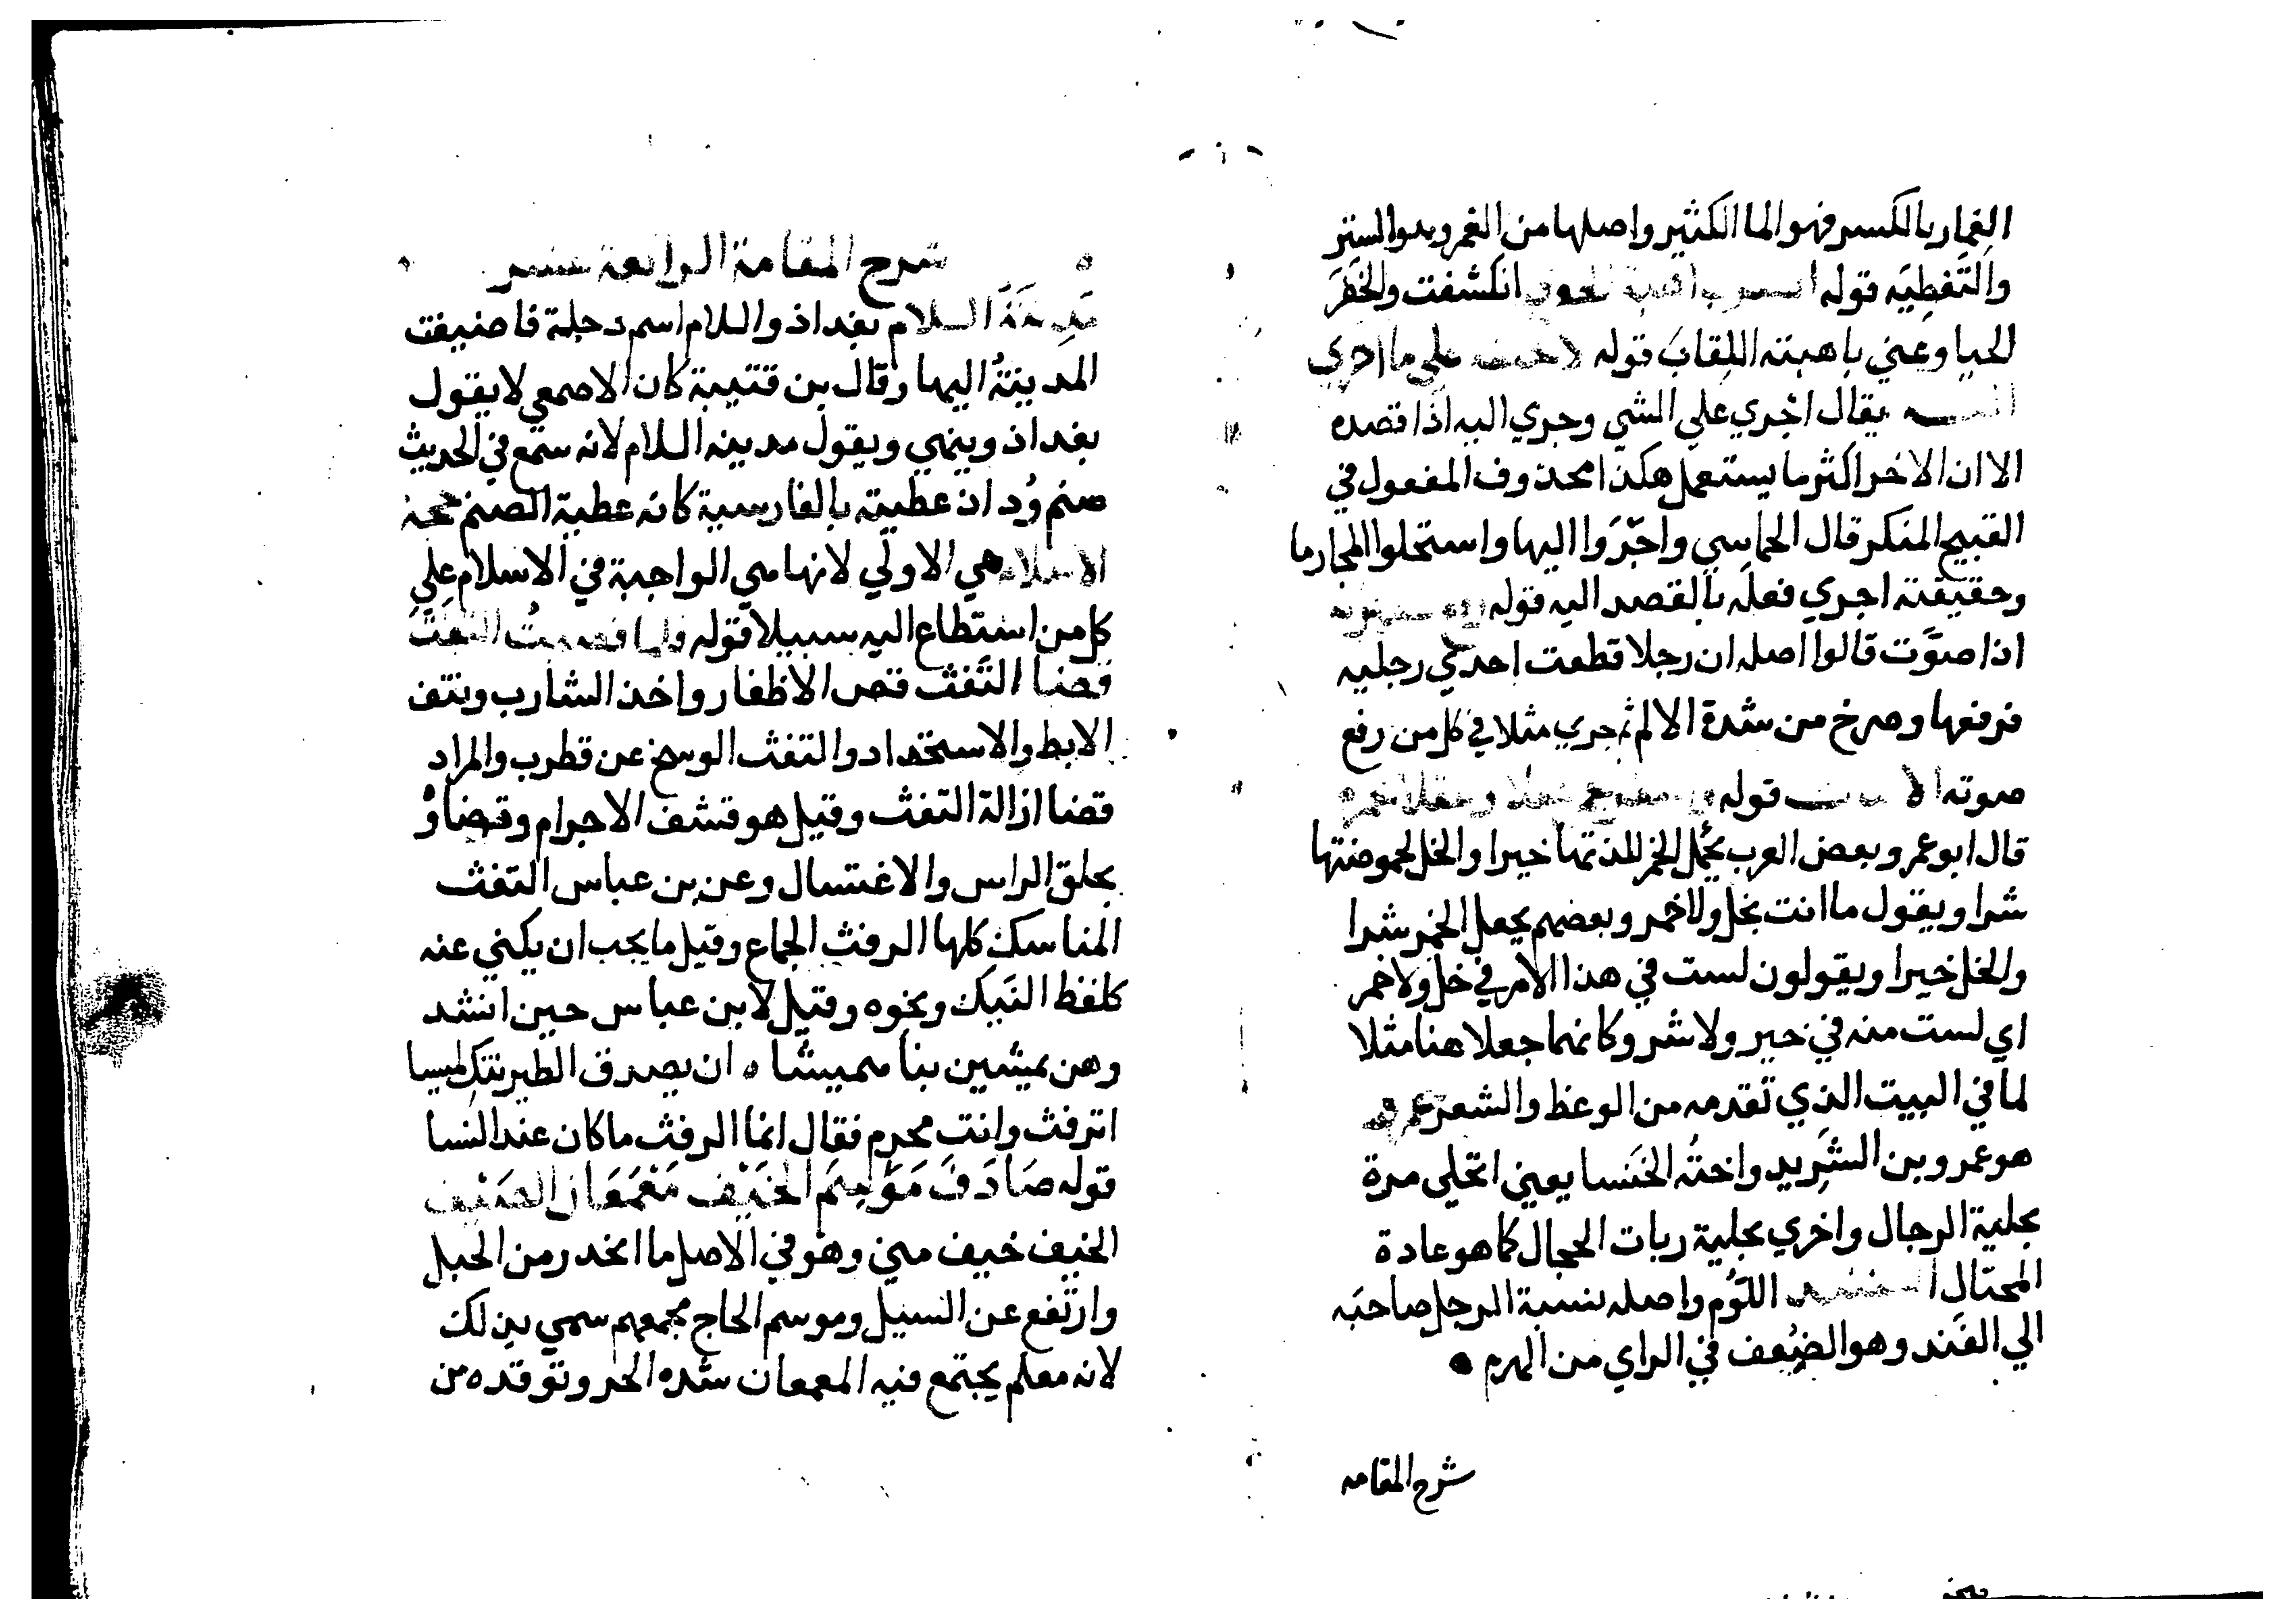 الغمار بالكسر فهو الما الكثير واصلها من الغمر وهو الستر
والتَغطِيَه قوله انكشفت والخَفَرَ
الحيا وعني باهبته اللِقابَ قوله علي ما اجري
يقال اجري علي الشي وجري اليه اذا قصده
الا ان الاخر اكثر ما يستعمل هكذا محذوف المفعول في
القبيح المنكر قال الحماسي واجَّرَوا اليها واستحلوا المجارما
وحقيقته اجري فعله بالقصد اليه قوله
اذا صوَّت قالوا اصله ان رجلا قطعت احدي رجليه
فرفعها وصرخ من شدة الالم ثم جري مثلا في كل من رفع
صوته قوله
قال ابو عمر وبعض العرب يجُعل الخمر للذتها خيرا والخل لحموضتها
شرا ويقول ما انت بخل ولا خمر وبعضهم يجعل الخمر شرا
والخل خيرا ويقولون لست في هذا الامر في خل ولا خمر
اي لست منه في خير ولا شر وكانهما جعلا هنا مثلا
لما في البيت الذي تقدمه من الوعظ والشعر
هو عمرو بن الشَرِيد واختُه الخَنسا يعني اتحلي مرة
بحلية الرجال واخري بحلية ربات الحجال كما هو عادة
المحتال اللَوُم واصله نسبة الرجل صاحبَه
الي الفَند وهو الضُعف في الراي من الهرم
شرح المقامه
شرح المقامة الرابعة عشر
مَدِينَةُ السلام بغداذ والسلام اسم دجلة فاضيفت
المدينةُ اليها وقال بن قتيبة كان الاصمعي لا يقول
بغداذ وينهي ويقول مدينه السلام لانه سمع في الحديث
صنم وُداذ عطيته بالفارسية كانه عطية الصنم حجة
الاسلام هي الاولي لانها هي الواجبة في الاسلام علي
كل من استطاع اليه سبيلا قوله فلما قضيتُ التفَث
قضا التَفَث قص الاظفار واخذ الشارب ونتف
الابط والاستحداد والتفث الوسخ عن قطرب والمراد
قضا ازالة التفث وقيل هو قشف الاحرام وقضاوُه
بحلق الراس والاغتسال وعن بن عباس التفث
المناسك كلها الرفث الجماع وقيل ما يجب ان يكني عنه
كلفظ النَيك ونحوه وقيل لابن عباس حين انشد
وهن يمشين بنا هميشا ه ان يصدق الطير ننك لميسا
اترفث وانت محرم فقال انما الرفث ما كان عند النسا
قوله صَادَفَ مَوَاسِمَ الخَيْف مَعْمَعَان الصَيْف
الخيف خيف مني وهو في الاصل ما انحدر من الجبل
وارتفع عن السيل وموسم الحاج مجمعهم سمي بذلك
لانه معلم يجتمع فيه المعمعان شده الحر وتوقده من